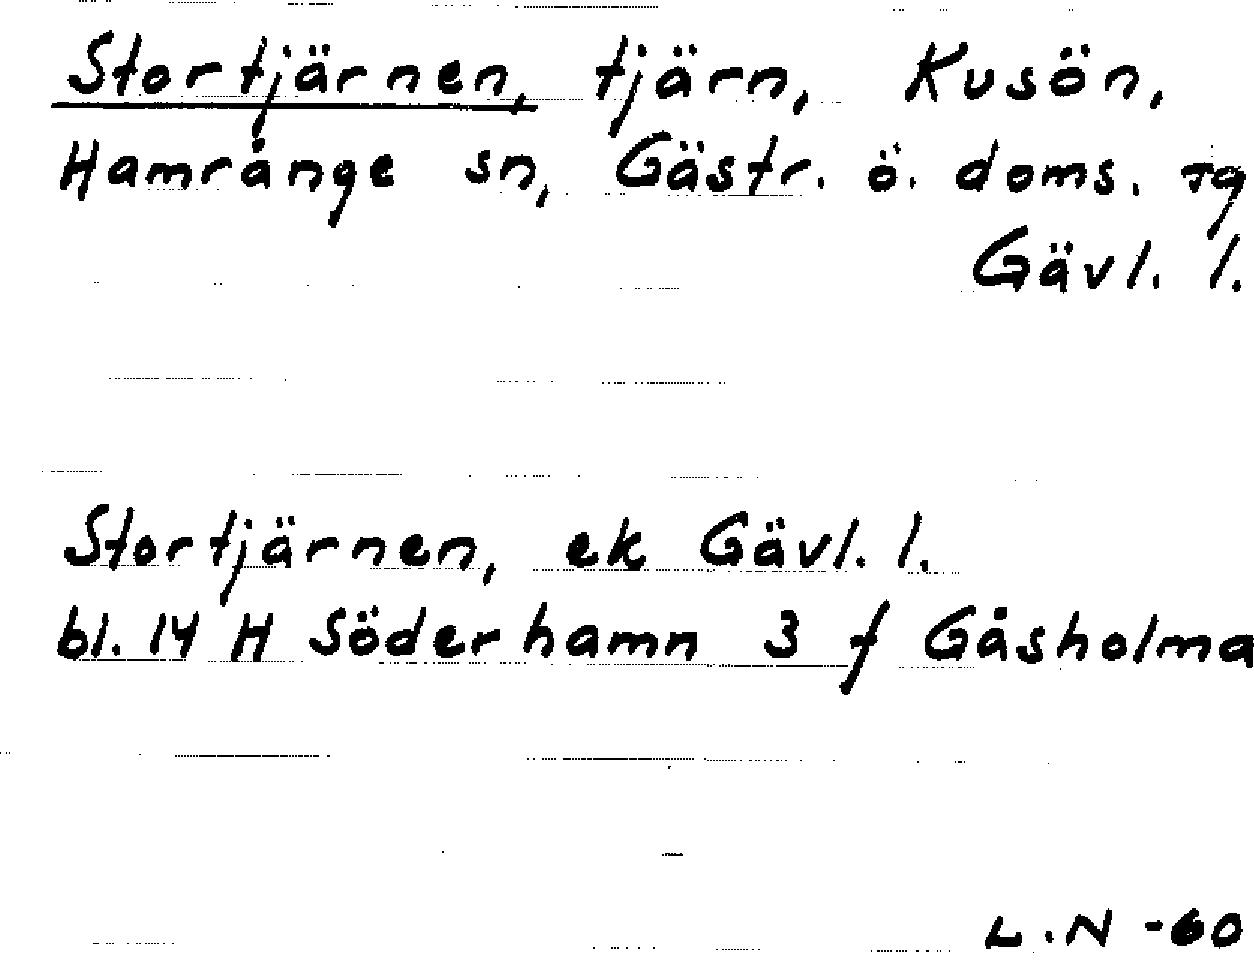 Stortjärnen, tjärn, Kusön,
Hamrånge sn, Gästr. ö. doms. tg
Gävl. l.
Stortjärnen, ek Gävl. l.
bl. 14 H Söderhamn 3 f Gåsholma
L.N -60